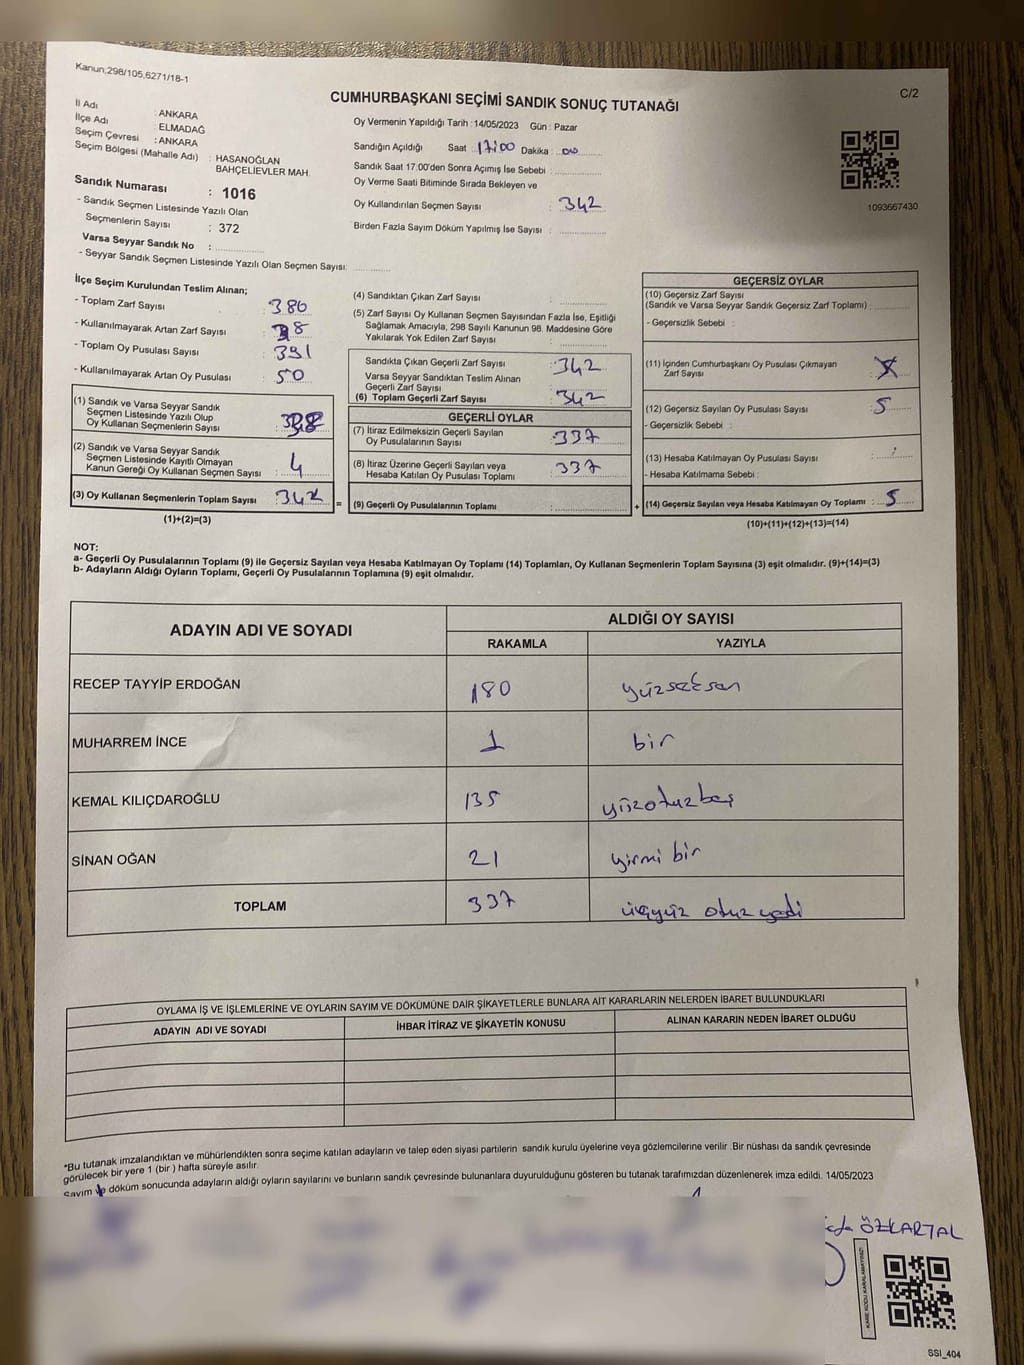 Kanun;298/105,6271/18-1
C/2
CUMHURBAŞKANI SEÇİMİ SANDIK SONUÇ TUTANAĞI
İl Adı : ANKARA
İlçe Adı : ELMADAĞ
Seçim Çevresi : ANKARA
Seçim Bölgesi (Mahalle Adı) : HASANOĞLAN BAHÇELİEVLER MAH.
Sandık Numarası : 1016
- Sandık Seçmen Listesinde Yazılı Olan
Seçmenlerin Sayısı : 372
Varsa Seyyar Sandık No :
- Seyyar Sandık Seçmen Listesinde Yazılı Olan Seçmen Sayısı:
Oy Vermenin Yapıldığı Tarih :14/05/2023 Gün : Pazar
Sandığın Açıldığı Saat : 17:00 Dakika :
Sandık Saat 17:00'den Sonra Açımış İse Sebebi :
Oy Verme Saati Bitiminde Sırada Bekleyen ve
Oy Kullandırılan Seçmen Sayısı : 342
Birden Fazla Sayım Döküm Yapılmış İse Sayısı :
1093667430
İlçe Seçim Kurulundan Teslim Alınan;
- Toplam Zarf Sayısı : 380
- Kullanılmayarak Artan Zarf Sayısı : 38
- Toplam Oy Pusulası Sayısı : 391
- Kullanılmayarak Artan Oy Pusulası : 50
(1) Sandık ve Varsa Seyyar Sandık
Seçmen Listesinde Yazılı Olup
Oy Kullanan Seçmenlerin Sayısı : 338
(2) Sandık ve Varsa Seyyar Sandık
Seçmen Listesinde Kayıtlı Olmayan
Kanun Gereği Oy Kullanan Seçmen Sayısı : 4
(3) Oy Kullanan Seçmenlerin Toplam Sayısı : 342 =
(1)+(2)=(3)
(4) Sandıktan Çıkan Zarf Sayısı :
(5) Zarf Sayısı Oy Kullanan Seçmen Sayısından Fazla İse, Eşitliği
Sağlamak Amacıyla, 298 Sayılı Kanunun 98. Maddesine Göre
Yakılarak Yok Edilen Zarf Sayısı :
Sandıkta Çıkan Geçerli Zarf Sayısı : 342
Varsa Seyyar Sandıktan Teslim Alınan
Geçerli Zarf Sayısı :
(6) Toplam Geçerli Zarf Sayısı : 342
GEÇERLİ OYLAR
(7) İtiraz Edilmeksizin Geçerli Sayılan
Oy Pusulalarının Sayısı : 337
(8) İtiraz Üzerine Geçerli Sayılan veya
Hesaba Katılan Oy Pusulası Toplamı : 337
(9) Geçerli Oy Pusulalarının Toplamı : +
GEÇERSİZ OYLAR
(10) Geçersiz Zarf Sayısı
(Sandık ve Varsa Seyyar Sandık Geçersiz Zarf Toplamı) :
- Geçersizlik Sebebi :
(11) İçinden Cumhurbaşkanı Oy Pusulası Çıkmayan
Zarf Sayısı :
(12) Geçersiz Sayılan Oy Pusulası Sayısı : 5
- Geçersizlik Sebebi :
(13) Hesaba Katılmayan Oy Pusulası Sayısı :
- Hesaba Katılmama Sebebi :
(14) Geçersiz Sayılan veya Hesaba Katılmayan Oy Toplamı : 5
(10)+(11)+(12)+(13)=(14)
NOT:
a- Geçerli Oy Pusulalarının Toplamı (9) ile Geçersiz Sayılan veya Hesaba Katılmayan Oy Toplamı (14) Toplamları, Oy Kullanan Seçmenlerin Toplam Sayısına (3) eşit olmalıdır. (9)+(14)=(3)
b- Adayların Aldığı Oyların Toplamı, Geçerli Oy Pusulalarının Toplamına (9) eşit olmalıdır.
ADAYIN ADI VE SOYADI
ALDIĞI OY SAYISI
RAKAMLA YAZIYLA
RECEP TAYYİP ERDOĞAN 180 yüzseksen
MUHARREM İNCE 1 bir
KEMAL KILIÇDAROĞLU 135 yüzotuzbeş
SİNAN OĞAN 21 yirmi bir
TOPLAM 337 üçyüz otuz yedi
OYLAMA İŞ VE İŞLEMLERİNE VE OYLARIN SAYIM VE DÖKÜMÜNE DAİR ŞİKAYETLERLE BUNLARA AİT KARARLARIN NELERDEN İBARET BULUNDUKLARI
ADAYIN ADI VE SOYADI İHBAR İTİRAZ VE ŞİKAYETİN KONUSU ALINAN KARARIN NEDEN İBARET OLDUĞU
*Bu tutanak imzalandıktan ve mühürlendikten sonra seçime katılan adayların ve talep eden siyasi partilerin sandık kurulu üyelerine veya gözlemcilerine verilir .Bir nüshası da sandık çevresinde
görülecek bir yere 1 (bir ) hafta süreyle asılır.
Sayım ve döküm sonucunda adayların aldığı oyların sayılarını ve bunların sandık çevresinde bulunanlara duyurulduğunu gösteren bu tutanak tarafımızdan düzenlenerek imza edildi. 14/05/2023
ÖZKARTAL
KARE KODU KARALAMAYINIZ!
SSI_404